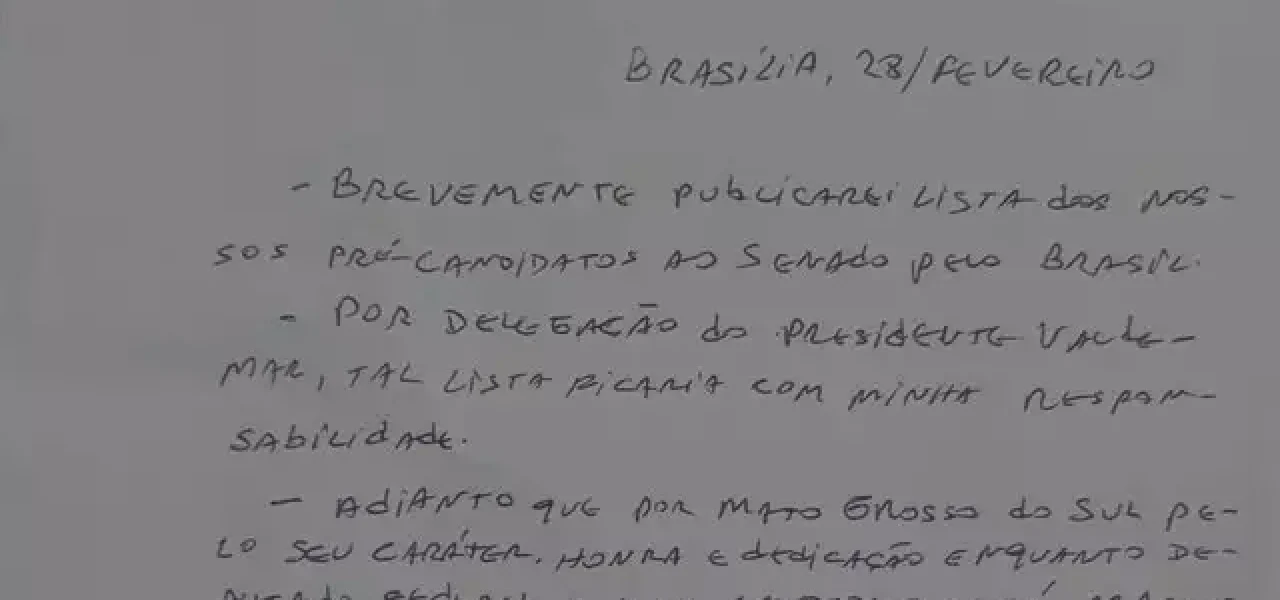 BRASÍLIA, 28/FEVEREIRO
- BREVEMENTE PUBLICAREI LISTA dos NOS-
SOS PRÉ-CANDIDATOS AO SENAdo pelo BRASIL.
- POR DELEGAÇÃO do PRESIDENTE VALDE-
MAR, TAL LISTA FICARIA COM MINHA RESPON-
SAbILIdAde.
- AdIANTO que POR MATO GROSSO do SUL PE-
LO SEU CARÁTER, HONRA E dedICAÇÃO ENQUANTO DE-